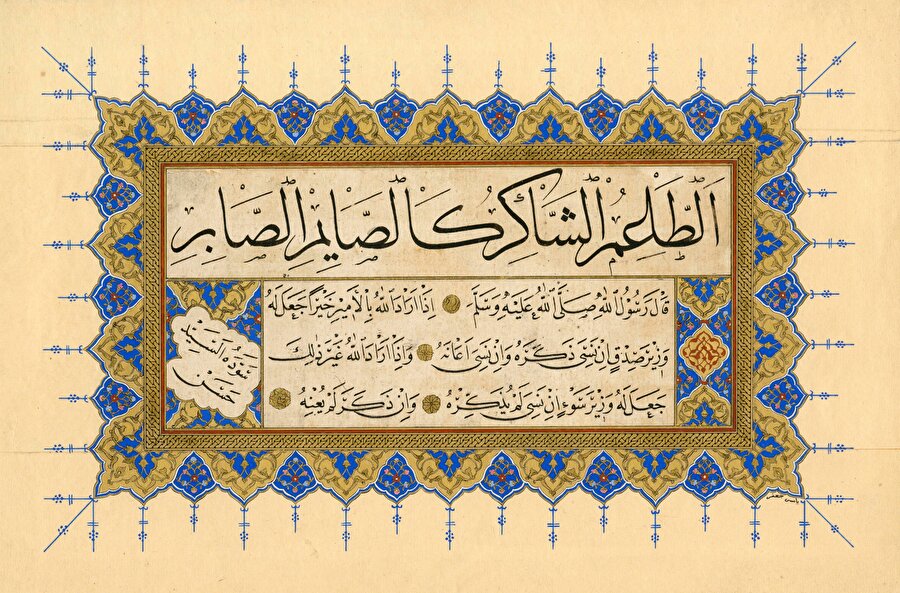 اَلطَّاعِمُ الشَّاكِرُ كَالصَّايِمِ الصَّابِرِ
قَالَ رَسُولُ اللهِ صَلَّى اللهُ عَلَيْهِ وَسَلَّمَ اِذَا اَرَادَ اللهُ بِالْاَمِيرِ خَيْرًا جَعَلَ لَهُ
وَزِيرَ صِدْقٍ اِنْ نَسِىَ ذَكَّرَهُ وَاِنْ نَسِىَ اَعَانَهُ وَاِذَا اَرَادَ اللهُ غَيْرَ ذٰلِكَ
جَعَلَ لَهُ وَزِيرَ سَوْءٍ اِنْ نَسِىَ لَمْ يُذَكِّرْهُ وَاِنْ ذَكَرَ لَمْ يُعِنْهُ
سوده السيد